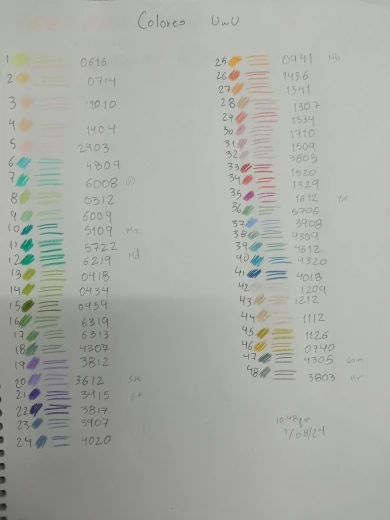 Colores UwU
1 0616
2 0714
3 1010
4 1404
5 2903
6 4809
7 6008
8 0312
9 6009
10 5109
11 5722
12 6219
13 0418
14 0434
15 0459
16 6319
17 6313
18 4307
19 3812
20 3612
21 3415
22 3817
23 3907
24 4020
25 0941
26 1436
27 1341
28 1307
29 1334
30 1710
31 1309
32 3805
33 1320
34 1329
35 1612
36 5706
37 3908
38 4309
39 4612
40 4320
41 4018
42 1209
43 1212
44 1112
45 1126
46 0740
47 4305
48 3803